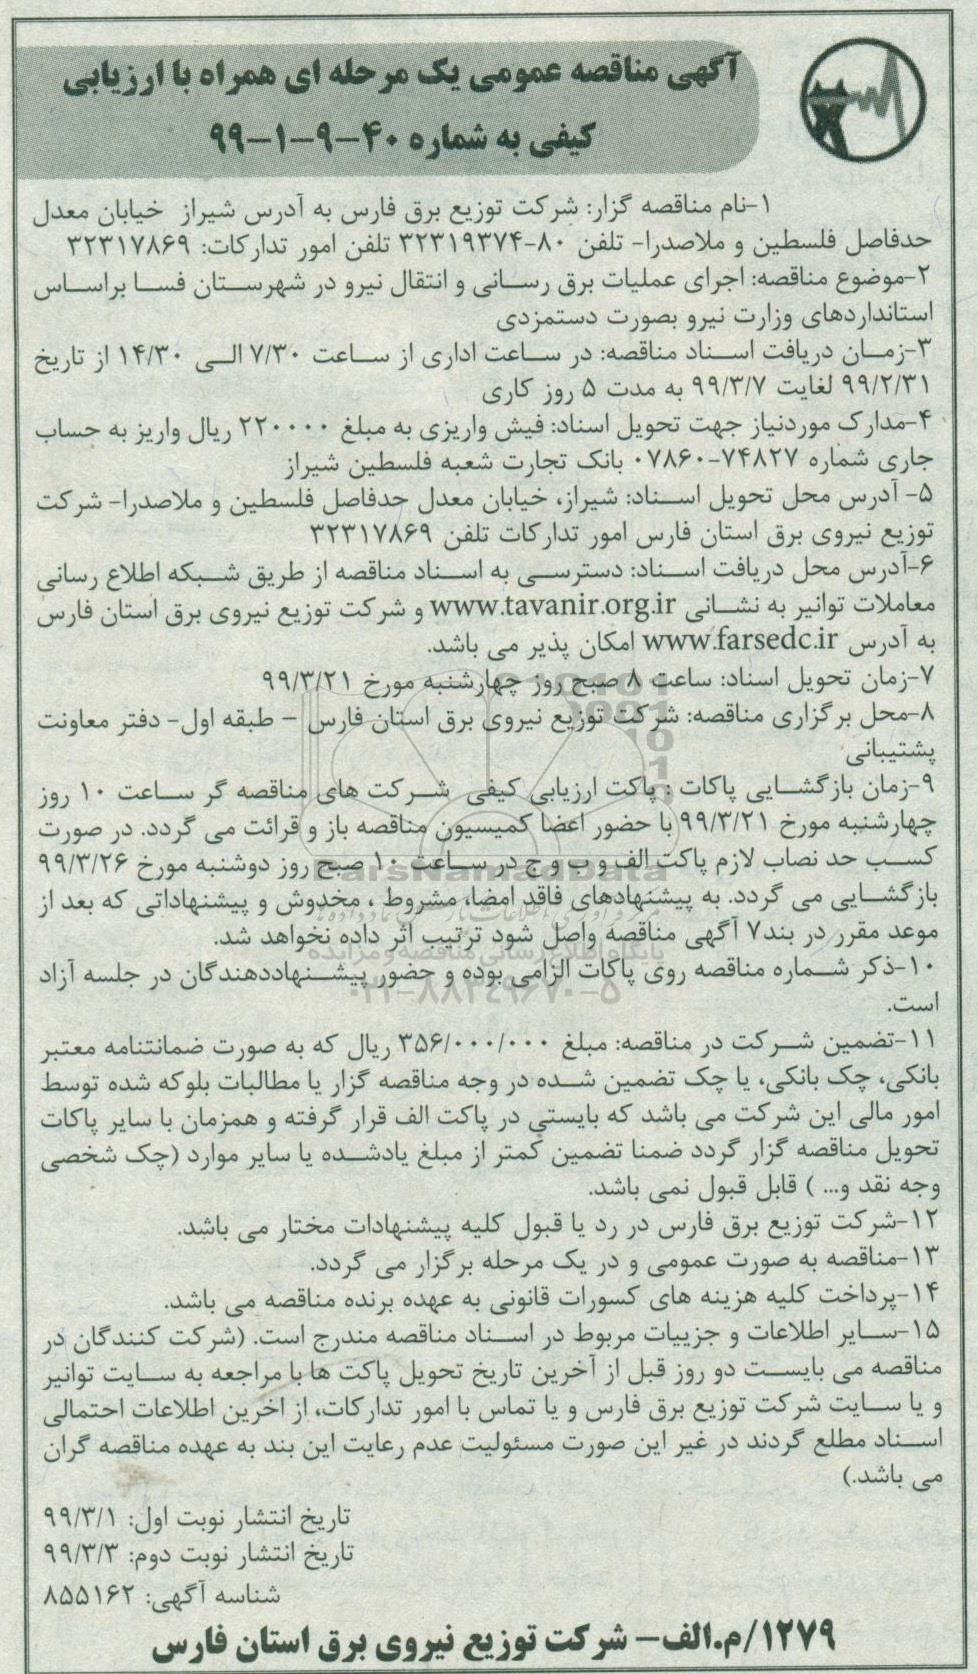 آگهی مناقصه عمومی یک مرحله ای همراه با ارزیابی
کیفی به شماره ۴۰-۹-۱-۹۹
۱-نام مناقصه گزار: شرکت توزیع برق فارس به آدرس شیراز خیابان معدل
حدفاصل فلسطین و ملاصدرا- تلفن ۸۰-۳۲۳۱۹۳۷۴ تلفن امور تدارکات: ۳۲۳۱۷۸۶۹
۲-موضوع مناقصه: اجرای عملیات برق رسانی و انتقال نیرو در شهرستان فسا براساس
استانداردهای وزارت نیرو بصورت دستمزدی
۳-زمان دریافت اسناد مناقصه: در ساعت اداری از ساعت ۷/۳۰ الی ۱۴/۳۰ از تاریخ
۹۹/۲/۳۱ لغایت ۹۹/۳/۷ به مدت ۵ روز کاری
۴-مدارک موردنیاز جهت تحویل اسناد: فیش واریزی به مبلغ ۲۲۰۰۰۰ ریال واریز به حساب
جاری شماره ۷۴۸۲۷-۰۷۸۶۰ بانک تجارت شعبه فلسطین شیراز
۵- آدرس محل تحویل اسناد: شیراز، خیابان معدل حدفاصل فلسطین و ملاصدرا- شرکت
توزیع نیروی برق استان فارس امور تدارکات تلفن ۳۲۳۱۷۸۶۹
۶-آدرس محل دریافت اسناد: دسترسی به اسناد مناقصه از طریق شبکه اطلاع رسانی
معاملات توانیر به نشانی www.tavanir.org.ir و شرکت توزیع نیروی برق استان فارس
به آدرس www.farsedc.ir امکان پذیر می باشد.
۷-زمان تحویل اسناد: ساعت ۸ صبح روز چهارشنبه مورخ ۹۹/۳/۲۱
۸-محل برگزاری مناقصه: شرکت توزیع نیروی برق استان فارس – طبقه اول- دفتر معاونت
پشتیبانی
۹-زمان بازگشایی پاکات : پاکت ارزیابی کیفی شرکت های مناقصه گر ساعت ۱۰ روز
چهارشنبه مورخ ۹۹/۳/۲۱ با حضور اعضا کمیسیون مناقصه باز و قرائت می گردد. در صورت
کسب حد نصاب لازم پاکت الف و ب و ج در ساعت ۱۰ صبح روز دوشنبه مورخ ۹۹/۳/۲۶
بازگشایی می گردد. به پیشنهادهای فاقد امضا، مشروط ، مخدوش و پیشنهاداتی که بعد از
موعد مقرر در بند۷ آگهی مناقصه واصل شود ترتیب اثر داده نخواهد شد.
۱۰-ذکر شماره مناقصه روی پاکات الزامی بوده و حضور پیشنهاددهندگان در جلسه آزاد
است.
۱۱-تضمین شرکت در مناقصه: مبلغ ۳۵۶/۰۰۰/۰۰۰ ریال که به صورت ضمانتنامه معتبر
بانکی، چک بانکی، یا چک تضمین شده در وجه مناقصه گزار یا مطالبات بلوکه شده توسط
امور مالی این شرکت می باشد که بایستی در پاکت الف قرار گرفته و همزمان با سایر پاکات
تحویل مناقصه گزار گردد ضمنا تضمین کمتر از مبلغ یادشده یا سایر موارد (چک شخصی
وجه نقد و... ) قابل قبول نمی باشد.
۱۲-شرکت توزیع برق فارس در رد یا قبول کلیه پیشنهادات مختار می باشد.
۱۳-مناقصه به صورت عمومی و در یک مرحله برگزار می گردد.
۱۴-پرداخت کلیه هزینه های کسورات قانونی به عهده برنده مناقصه می باشد.
۱۵-سایر اطلاعات و جزییات مربوط در اسناد مناقصه مندرج است. (شرکت کنندگان در
مناقصه می بایست دو روز قبل از آخرین تاریخ تحویل پاکت ها با مراجعه به سایت توانیر
و یا سایت شرکت توزیع برق فارس و یا تماس با امور تدارکات، از اخرین اطلاعات احتمالی
اسناد مطلع گردند در غیر این صورت مسئولیت عدم رعایت این بند به عهده مناقصه گران
می باشد.)
تاریخ انتشار نوبت اول: ۹۹/۳/۱
تاریخ انتشار نوبت دوم: ۹۹/۳/۳
شناسه آگهی: ۸۵۵۱۶۲
۱۲۷۹/م.الف- شرکت توزیع نیروی برق استان فارس
ParsNamadData
پایگاه اطلاع رسانی مناقصه و مزایده
۰۲۱-۸۸۳۴۹۶۷۰-۵